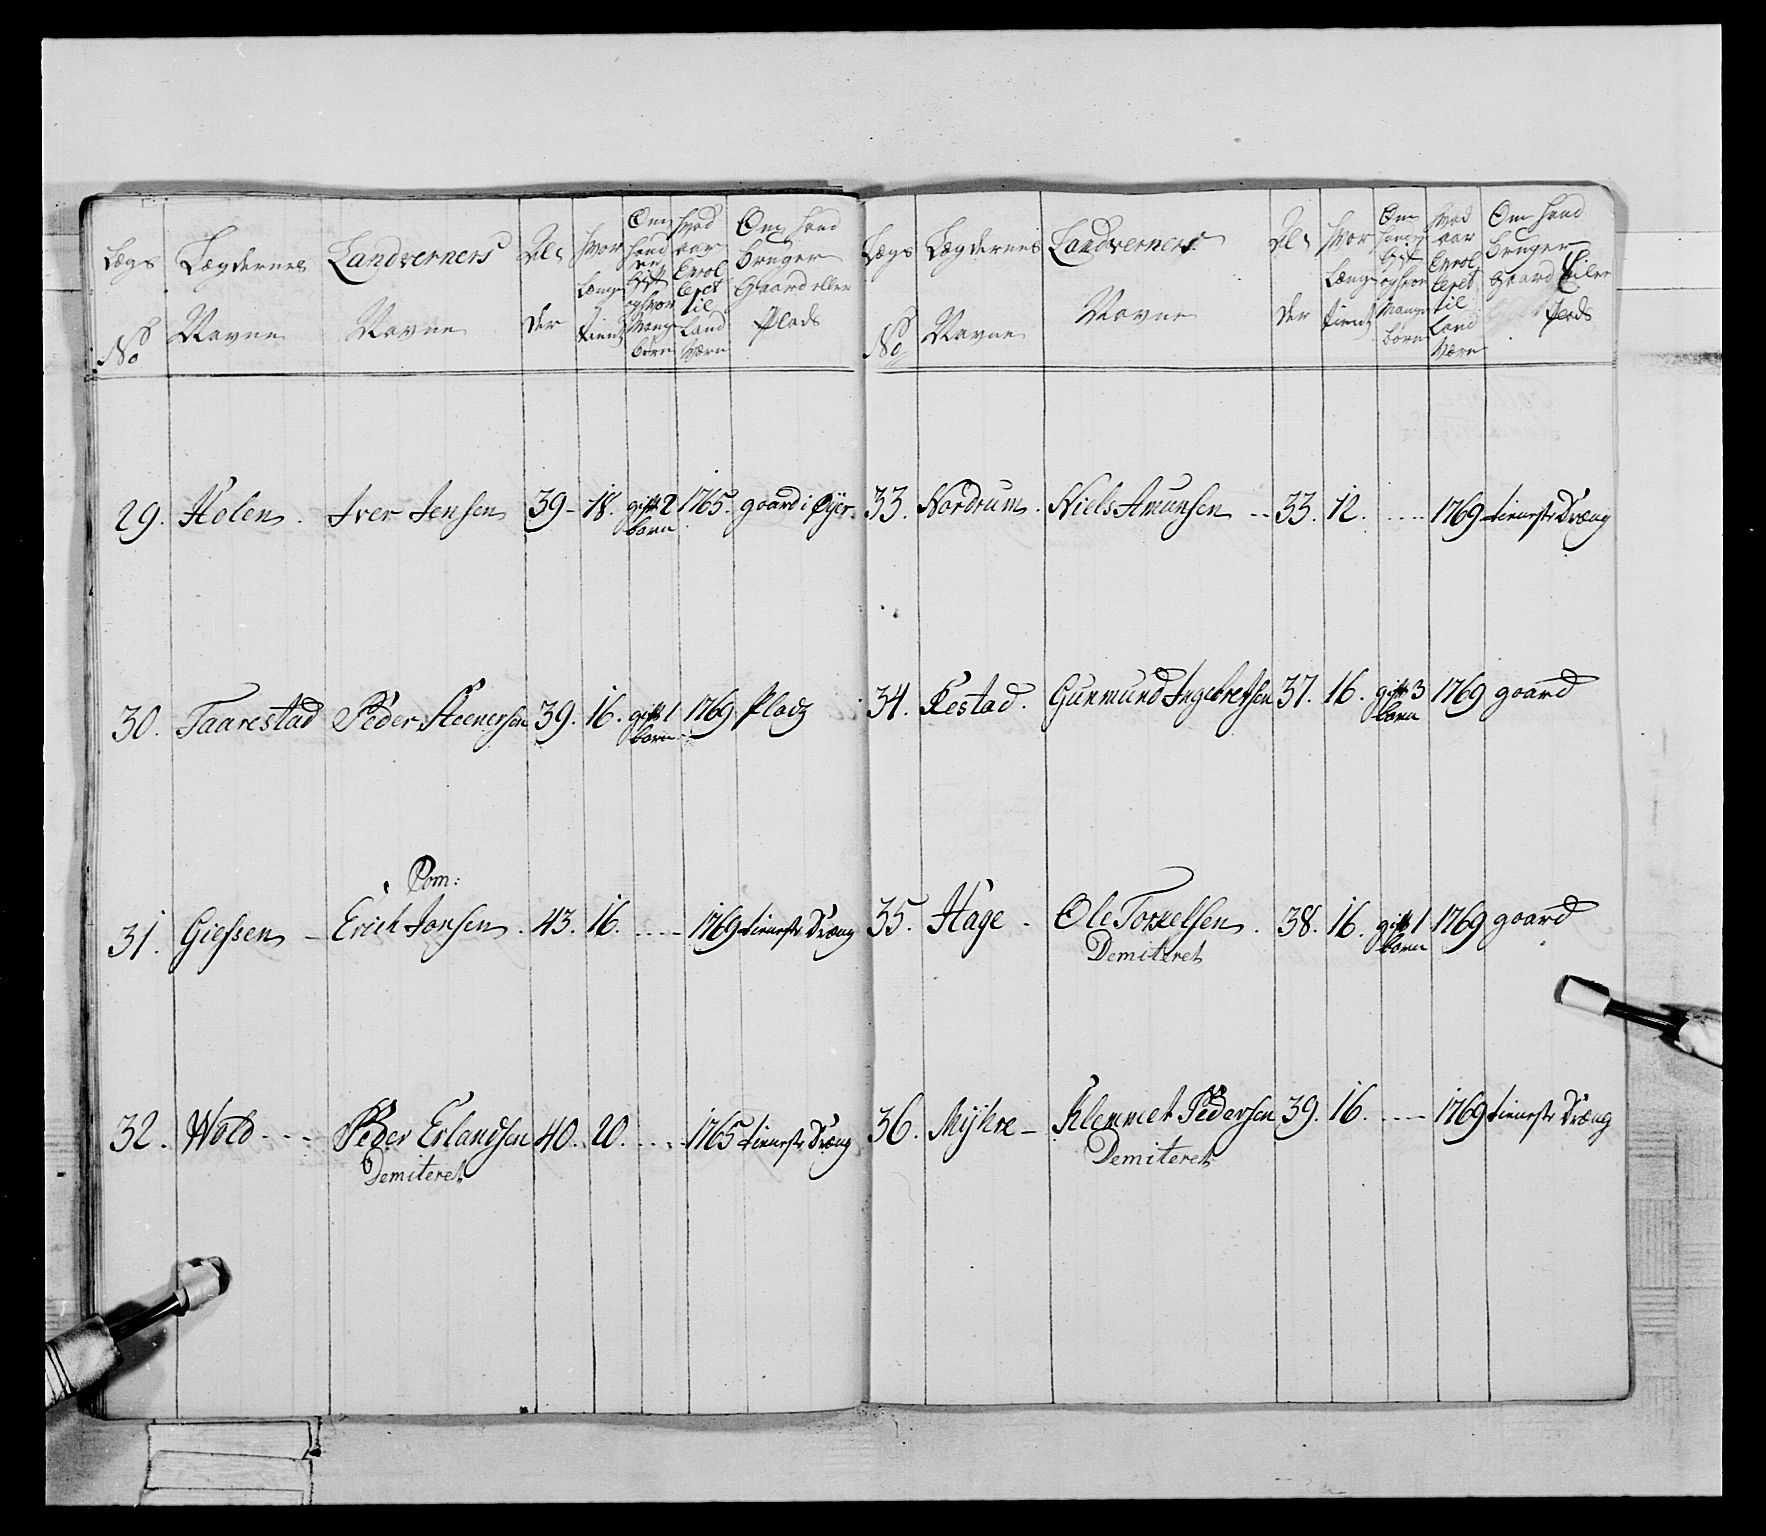 Lægs No
Lægdernes Navne
Landverners Navne
Al- der
Hvor længe tient
Om hand er gift og hvor mange børn
Hvad aar Enrolleret til Land Værn
Om hand bruger Gaard eller Plads
29. Holen. Iver Jensen 39- 18. gift 2 børn 1765. gaard i Øyer.
30. Taarestad Peder Steenersen 39. 16. gift 1 børn 1769 Pladz
Rom:
31. Giefsen - Erich Jonsen. 43. 16. ---- 1769 tieneste Dræng
32. Wold --- Peder Erlandsen 40. 20. ---- 1765 tieneste Dræng
Demiteret
Lægs No
Lægdernes Navne
Landverners Navne
Al- der
Hvor Længe tient
Om hand gift og hvor mange børn
Hvad aar Enrolleret til Land Værn
Om hand bruger Gaard Eller Plads
33. Nordrum. Niels Amunsen -- 33. 12. ---- 1769 tieneste Dræng
34. Kestad. Gunmund Ingebretsen 37. 16. gift 3 børn 1769 gaard
35. Hage - Ole Torkelsen. 38. 16. gift 1 børn 1769 gaard
Demiteret
36. Mÿhre - Klemmet Pedersen 39. 16. ---- 1769 tieneste Dræng
Demiteret